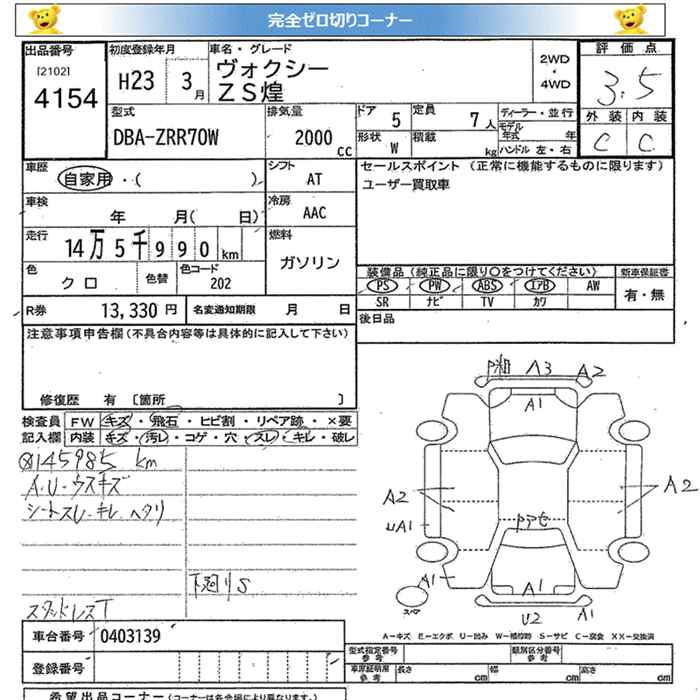 完全ゼロ切りコーナー
出品番号 初度登録年月 車名・グレード 評価点
[2102] H23 3月 ヴォクシー 2WD・4WD 3.5
4154 ZS煌
型式 排気量 ドア 5 定員 7人 ディーラー・並行 外装 内装
DBA-ZRR70W 2000cc 形状 W 積載 kg モデル年式 年 C C
ハンドル 左・右
車歴 自家用・( ) シフト AT セールスポイント (正常に機能するものに限ります)
ユーザー買取車
車検 年 月( 日) 冷房 AAC
走行 14万5千990km 燃料 ガソリン
色 クロ 色替 色コード 202 装備品 (純正品に限り○をつけてください) 新車保証書
PS PW ABS エアB AW 有・無
SR ナビ TV カワ
R券 13,330円 名変通知期限 月 日 後日品
注意事項申告欄 (不具合内容等は具体的に記入して下さい)
修復歴 有 〔箇所 〕
検査員 FW キズ・飛石・ヒビ割・リペア跡・×要
記入欄 内装 キズ・汚レ・コゲ・穴・スレ・キレ・破レ
145985 km
A.U-ウスキズ
シートスレ・キレ ヘタリ
下廻りS
スタッドレスT
A3 A2
A1
A2 A2
UA1
A1 A1 A1
スペア U2
A-キズ E-エクボ U-凹み W-補修跡 S-サビ C-腐食 XX-交換済
車台番号 0403139 型式指定番号 参考 類別区分番号 参考
登録番号 車庫証明用 参考 長さ cm 幅 cm 高さ cm
希望出品コーナー (コーナーは各会場により異なります。)